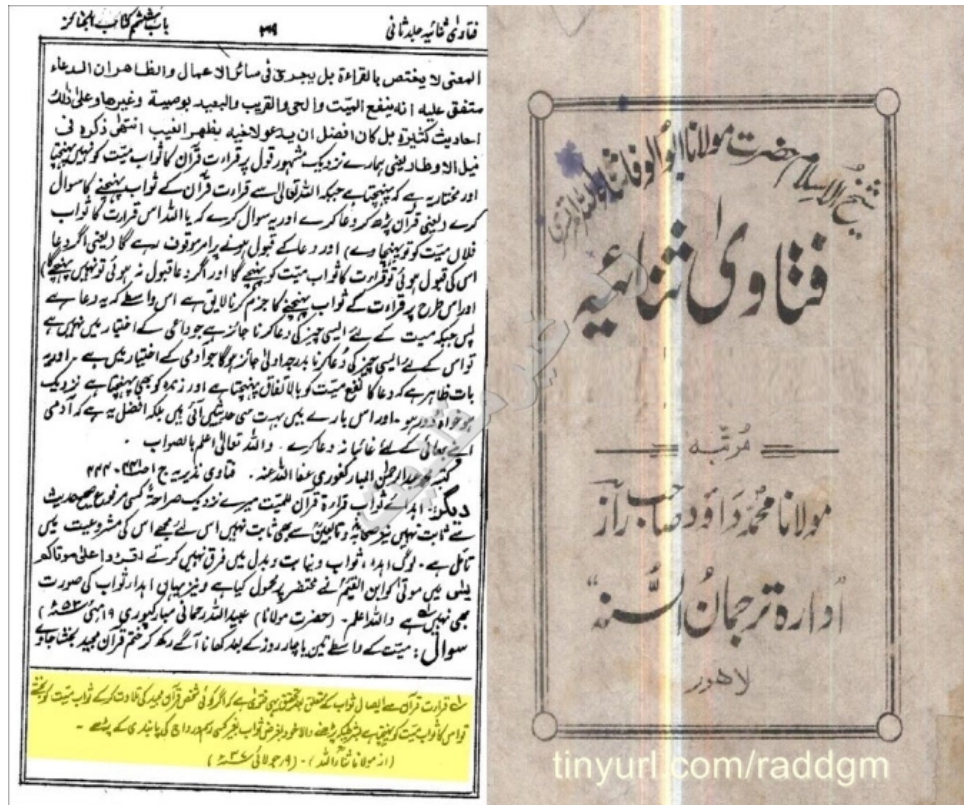 فتاویٰ ثنائیہ جلد ثانی
۳۹
باب ششم کتاب الجنائز
المعنی لا یختص بالقراءة بل یجری فی سائر الاعمال والظاهر ان الدعاء
متفق علیه انه ینفع المیت والحی والقریب والبعید بوصیة وغیرها وعلی ذلك
احادیث کثیرة بل کان افضل ان یدعو لاخیه بظهر الغیب انتهی ذکره فی
نیل الاوطار یعنی ہمارے نزدیک مشہور قول پر قراءت قرآن کا ثواب میت کو نہیں پہنچتا
اور مختار یہ ہے کہ پہنچتا ہے جبکہ اللہ تعالیٰ سے قراءت قرآن کے ثواب پہنچنے کا سوال
کرے (یعنی قرآن پڑھ کر دعا کرے اور یہ سوال کرے کہ یا اللہ اس قراءت کا ثواب
فلاں میت کو تو پہنچا دے) اور دعا کے قبول ہونے پر امر موقوف رہے گا (یعنی اگر دعا
اس کی قبول ہوئی تو قراءت کا ثواب میت کو پہنچے گا اور اگر دعا قبول نہ ہوئی تو نہیں پہنچے گا)
اور اس طرح پر قراءت کے ثواب پہنچنے کا جزم کرنا لایق ہے اس واسطے کہ یہ دعا ہے
پس جبکہ میت کے لئے ایسی چیز کی دعا کرنا جائز ہے جو داعی کے اختیار میں نہیں ہے
تو اس کے لئے ایسی چیز کی دعا کرنا بدرجہ اولیٰ جائز ہوگا جو آدمی کے اختیار میں ہے اور یہ
بات ظاہر ہے کہ دعا کا نفع میت کو بالاتفاق پہنچتا ہے اور زندہ کو بھی پہنچتا ہے نزدیک
ہو خواہ دور ہو۔ اور اس بارے میں بہت سی حدیثیں آئی ہیں بلکہ افضل یہ ہے کہ آدمی
اپنے بھائی کے لئے غائبانہ دعا کرے۔ واللہ تعالیٰ اعلم بالصواب۔
کتبہ محمد عبدالرحمٰن المبارکفوری عفا اللہ عنہ۔ فتاویٰ نذیریہ ج ا ص ۴۴۱-۴۴۴
دیگر: اہدائے ثواب قراءة قرآن للمیت میرے نزدیک صراحۃً کسی مرفوع صحیح حدیث
سے ثابت نہیں نیز صحابہ و تابعین سے بھی ثابت نہیں اس لئے مجھے اس کی مشروعیت میں
تأمل ہے۔ لوگ اہداء ثواب و نیابت و بدل میں فرق نہیں کرتے اقرؤا علی موتاکم
یٰس میں موتی کو ابن القیم نے محتضر پر محمول کیا ہے و نیز یہاں اہداء ثواب کی صورت
بھی نہیں ہے واللہ اعلم۔ (حضرت مولانا) عبیداللہ رحمانی مبارکپوری
سوال: میت کے واسطے تین یا چار روز کے بعد کھانا آگے رکھ کر ختم قرآن مجید بخشا جاوے
قراءت قرآن سے ایصال ثواب کے متعلق بعد تحقیق یہی فتویٰ ہے کہ اگر کوئی شخص قرآن مجید کی تلاوت کرکے ثواب میت کو بخشے
تو اس کا ثواب میت کو پہنچتا ہے بشرطیکہ پڑھنے والا خود بغرض ثواب بغیر کسی رسم و رواج کی پابندی کے پڑھے۔
(از مولانا ثناء اللہ)
شیخ الاسلام حضرت مولانا ابوالوفا ثناء اللہ امرتسری
فتاویٰ ثنائیہ
مرتبہ
مولانا محمد داؤد صاحب راز
ادارہ ترجمان السنہ
لاہور
tinyurl.com/raddgm